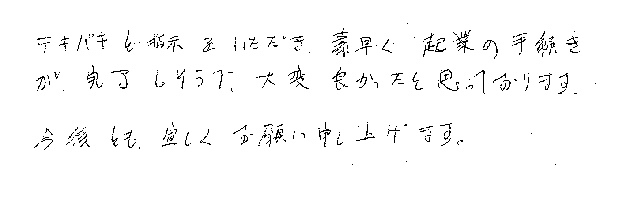 テキパキと指示をいただき、素早く起業の手続き
が、完了しそうで、大変良かったと思っております。
今後とも、宜しくお願い申し上げます。